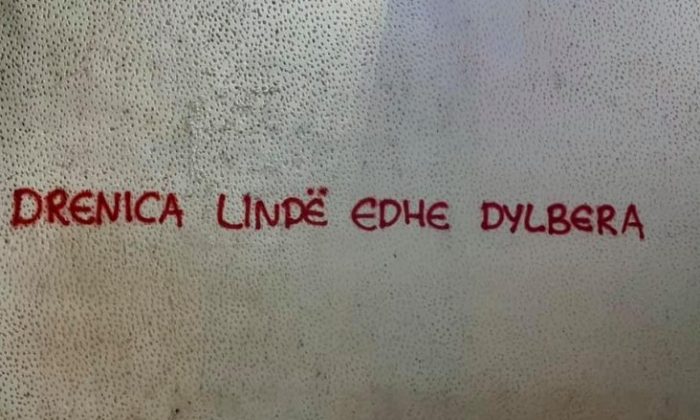 DRENICA LINDË EDHE DYLBERA